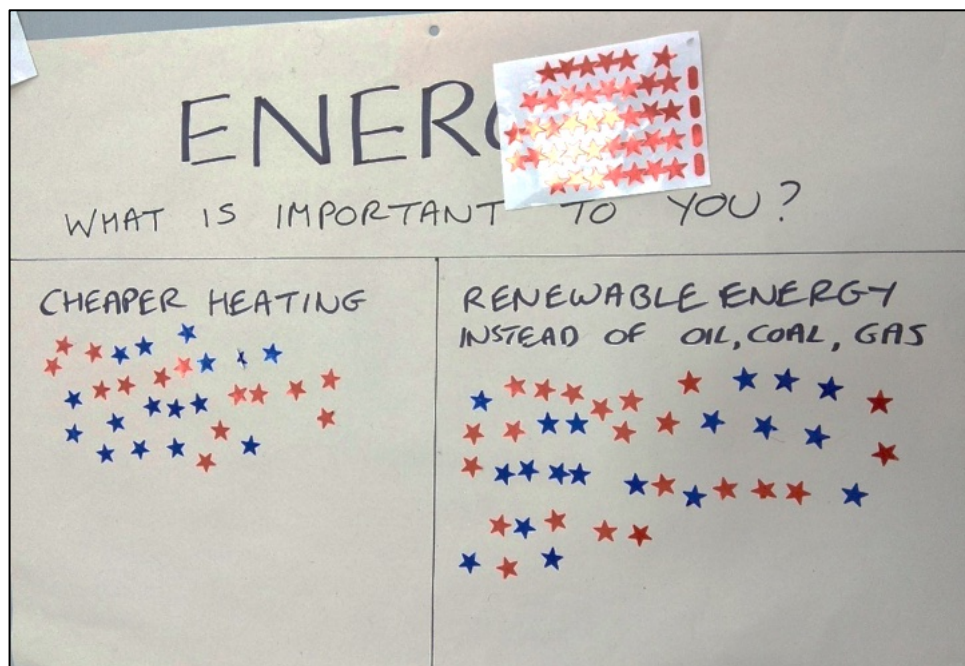 ENER
WHAT IS IMPORTANT TO YOU?
CHEAPER HEATING
RENEWABLE ENERGY
INSTEAD OF OIL, COAL, GAS